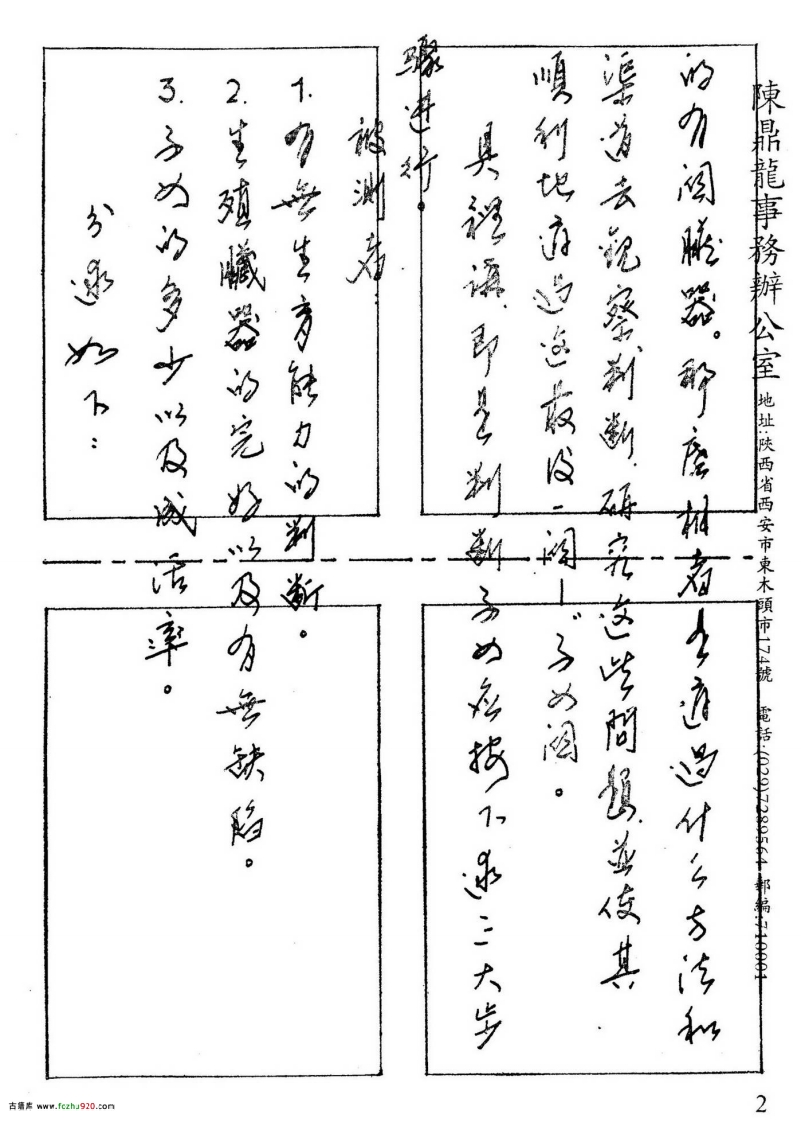 陳鼎龍事務辦公室 地址:陝西省西安市東木頭市174號 電話:(029)7289564 郵編:710001
的有関臟器。那麼相者在通過什么方法和
渠道去観察、判断、研究这些問題,並使其
順利地通过这最後一関—"子女関。
具裡講,即是判断子女应按下述三大步
驟進行。
被测者:
1.有無生育能力的判断。
2.生殖臟器的完好以及有無缺陷。
3.子女的多少以及成活率。
分述如下:
2
古籍库 www.fozhu920.com